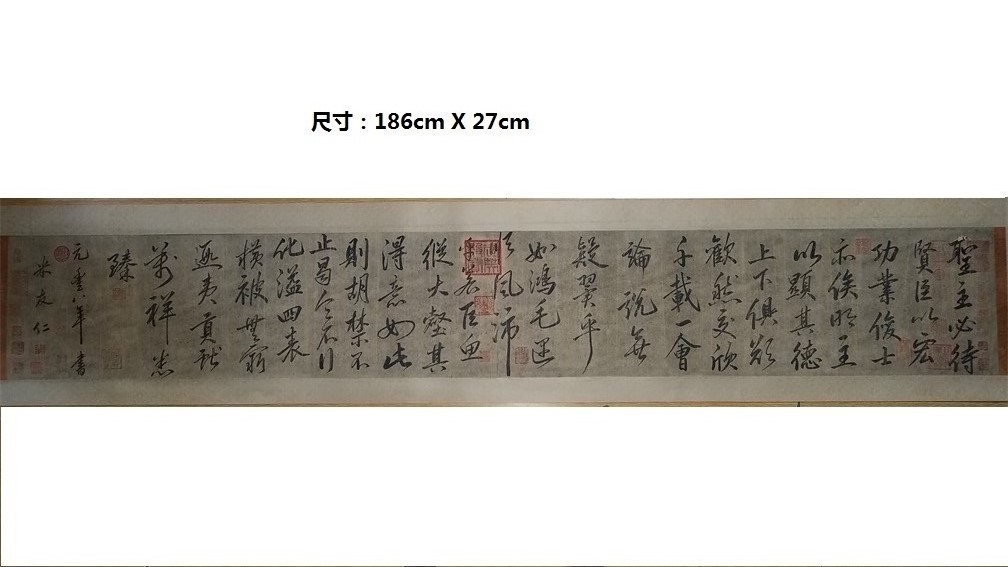 尺寸：186cm X 27cm
聖主必待
賢臣以宏
功業俊士
亦俟明主
以顯其德
上下俱欲
歡然交欣
千載一會
論說無
疑翼乎
如鴻毛遇
順風沛
乎若巨魚
縱大壑其
得意如此
則胡禁不
止曷令不行
化溢四表
橫被無窮
遐夷貢獻
萬祥悉
臻
元八年書
米友仁